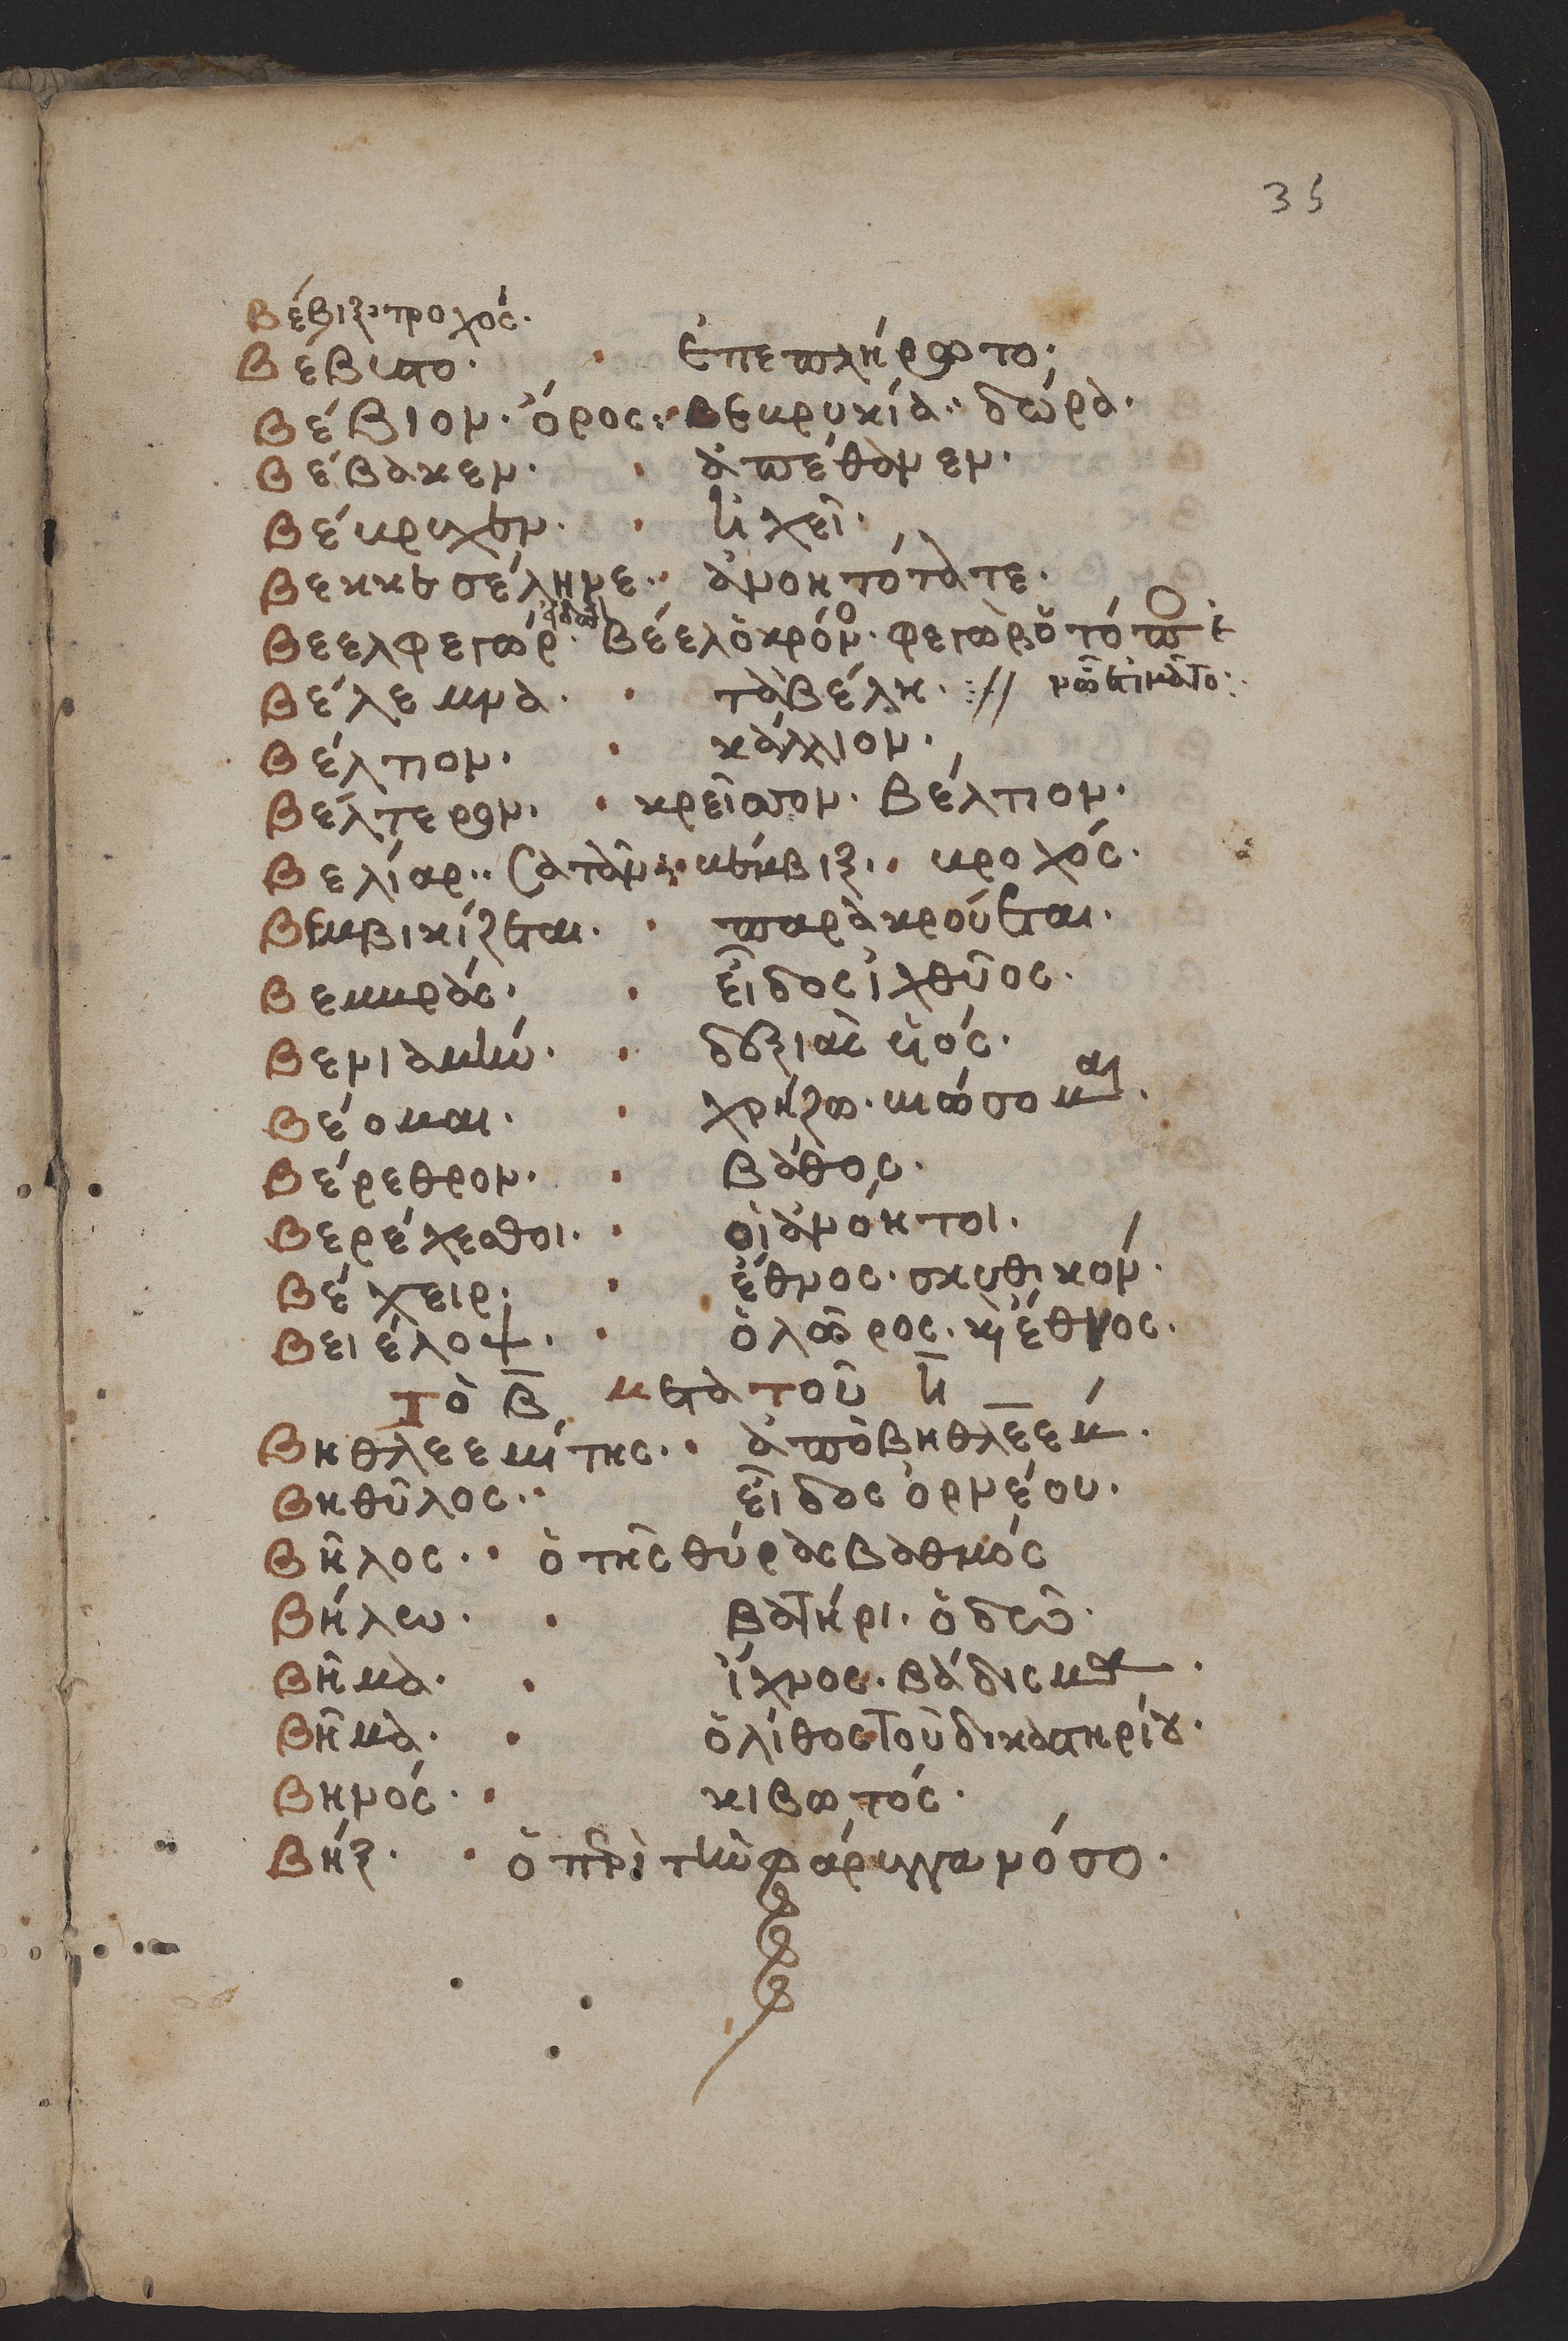 35
Βέβιξ· τροχός·
Βέβυστο· · ἐπεπλήρωτο·
Βέβιον· ὄρος· Βεκρυκία· δῶρα·
Βέβακεν· · ἀπέθανεν·
ἠχεῖ·
Βεκκεσέληνε· · ἀνοητότατε·
Βεελφεγώρ· Βέελ ὁ κρόν· φεγὼρ ὁ τόπ
Βέλεμνα· · τὰ βέλη·
Βέλτιον· · κάλλιον·
Βέλτερον· · κρεῖσσον· βέλτιον·
Βελίαρ· · Σατάν· · τροχός·
Βεμβικίζεται· · παρακρούεται·
Βεμβράς· · εἶδος ἰχθύος·
Βενιαμὶν· · δεξιᾶς υἱός·
Βέομαι· · χρήζω· βιώσομαι·
Βέρεθρον· · βάθος·
Βερέχεσθοι· · οἱ ἀνόητοι·
Βέχειρ· · ἔθνος· σκυθικόν·
Βειέλοψ· · ὁλαῦρος· καὶ ἔθνος·
Τὸ β μετὰ τοῦ η
Βηθλεεμίτης· · ἀπὸ βηθλεέμ·
Βηθύλος· · εἶδος ὀρνέου·
Βῆλος· · ὁ τῆς θύρας βαθμός
Βήλω· · βατῆρι· ὁδῶ·
Βῆμα· · ἴχνος· βάδισμα·
Βῆμα· · ὁ λίθος τοῦ δικαστηρίου·
Βημός· · κιβωτός·
Βήξ· · ὁ περὶ τὴν φάρυγγα νόσο·